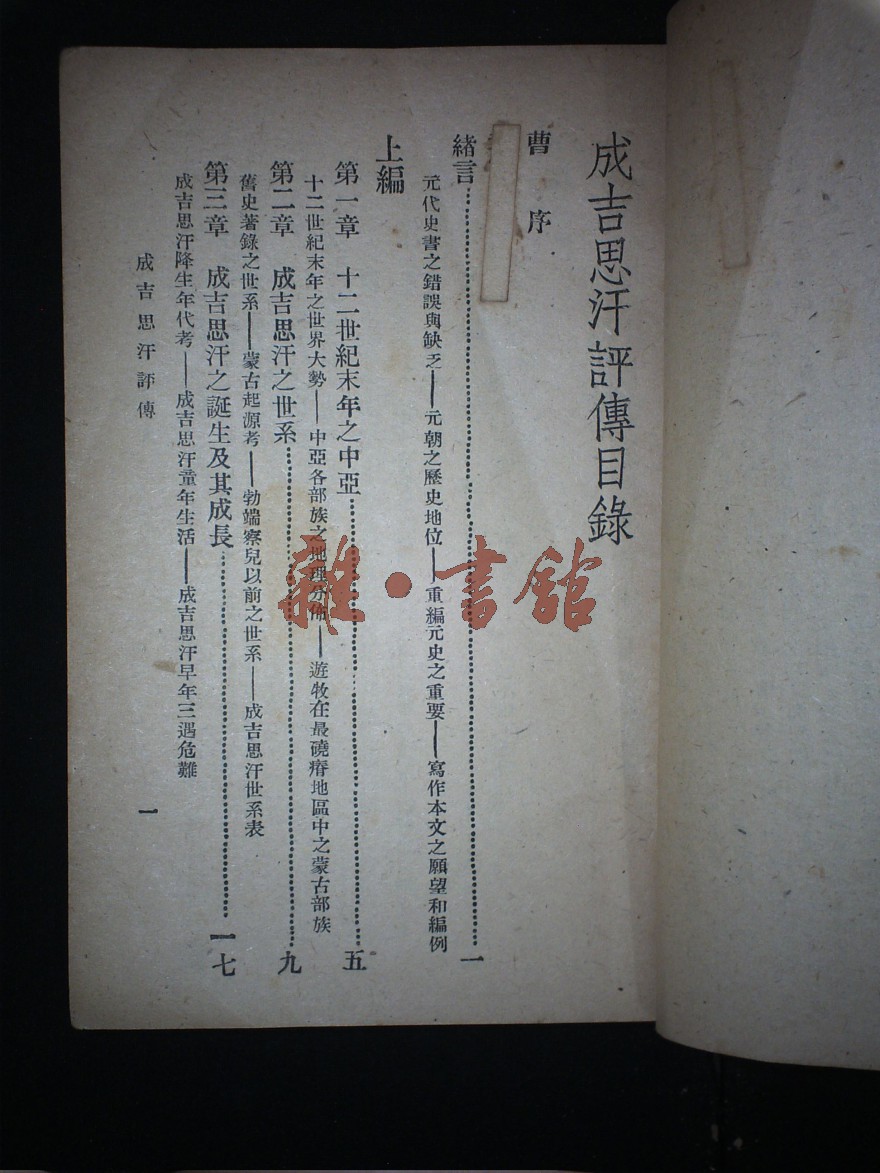 成吉思汗評傳目錄
曹序
緒言……一
元代史書之錯誤與缺乏——元朝之歷史地位——重編元史之重要——寫作本文之願望和編例
上編
第一章 十二世紀末年之中亞……五
十二世紀末年之世界大勢——中亞各部族之地理分佈——遊牧在最磽瘠地區中之蒙古部族
第二章 成吉思汗之世系……九
舊史著錄之世系——蒙古起源考——勃端察兒以前之世系——成吉思汗世系表
第三章 成吉思汗之誕生及其成長……一七
成吉思汗降生年代考——成吉思汗童年生活——成吉思汗早年三遇危難
成吉思汗評傳
一
雜·書館